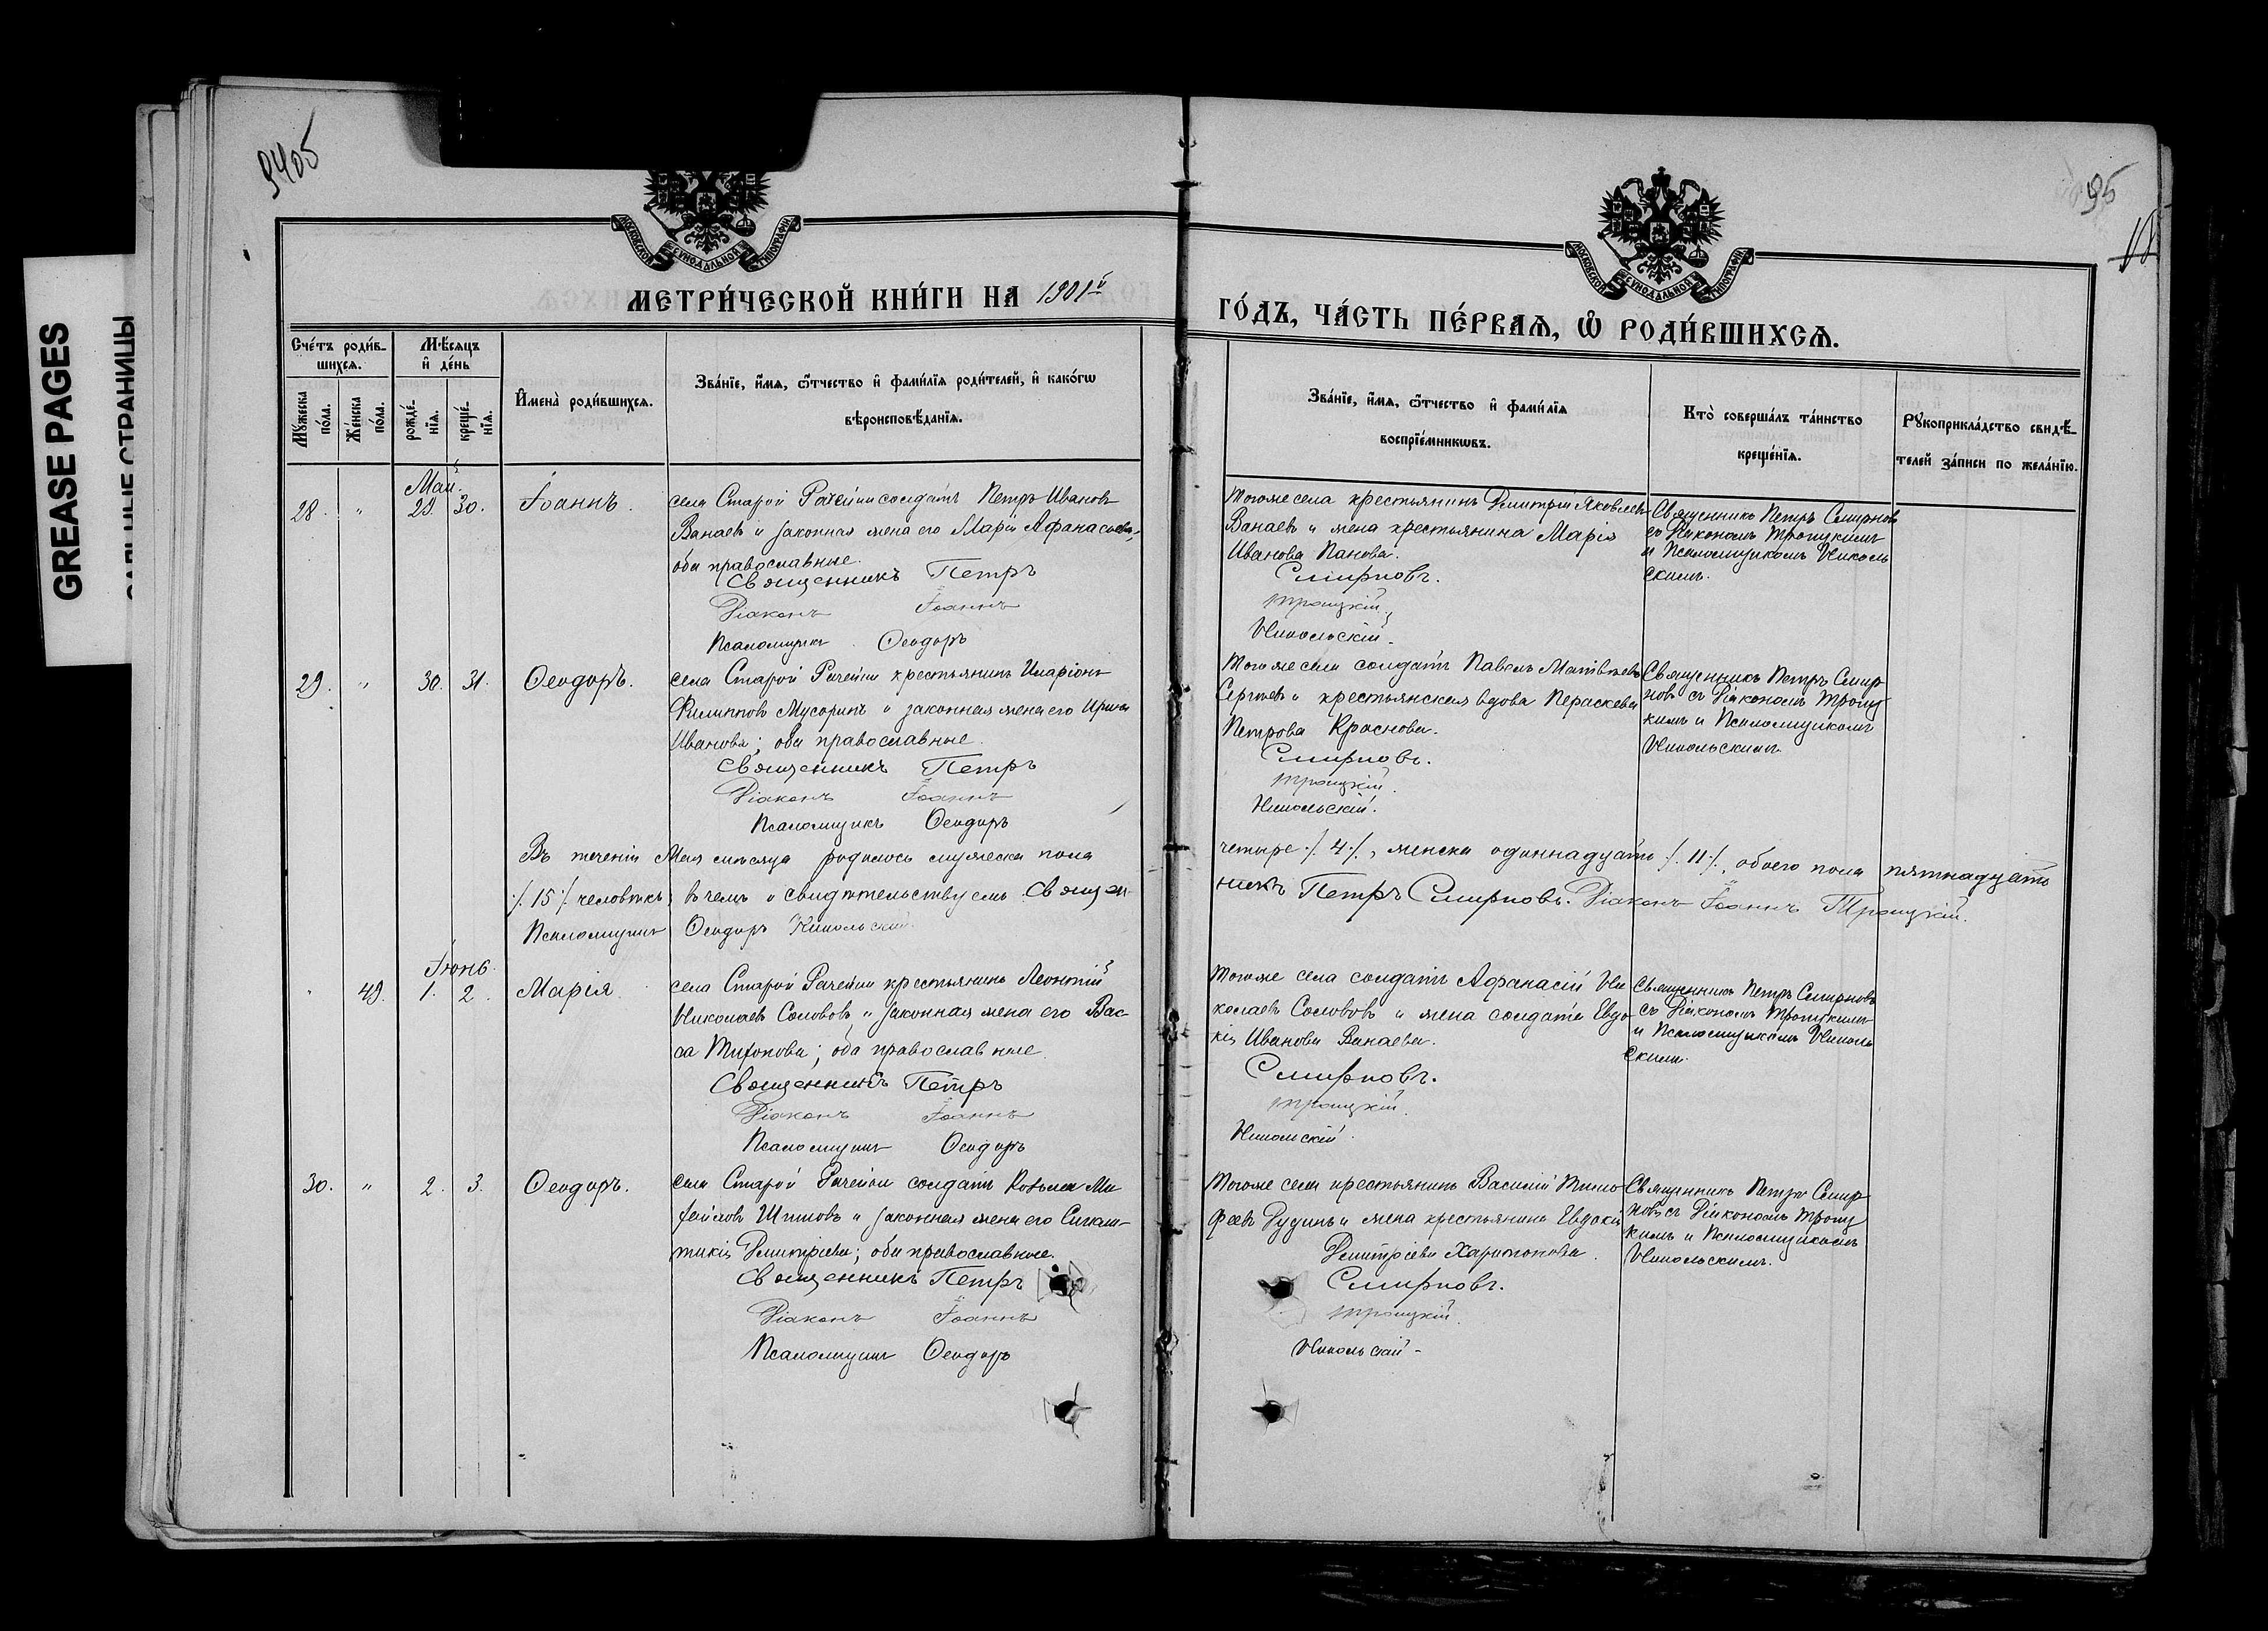 GREASE PAGES
9405
95
МОСКОВСКОЙ СѴНОДАЛЬНОЙ ТИПОГРАФІИ
МОСКОВСКОЙ СѴНОДАЛЬНОЙ ТИПОГРАФІИ
МЕТРИ́ЧЕСКОЙ КНИ́ГИ НА 1901й
ГО́ДЪ, ЧА́СТЬ ПЕ́РВАѦ, Ѽ РОДИ́ВШИХСѦ.
Сче́тъ роди́в-
шихсѧ.
Мꙋ́жеска по́ла.
Же́нска по́ла.
Мѣ́сѧцъ и҆ де́нь
рожде́-нїѧ.
креще́-нїѧ.
И҆мена̀ роди́вшихсѧ.
Зва́нїе, и҆́мѧ, ѻ҆́тчество и҆ фами́лїѧ роди́телей, и҆ како́гѡ
вѣроисповѣ́данїѧ.
Зва́нїе, и҆́мѧ, ѻ҆́тчество и҆ фами́лїѧ
воспрїе́мникѡвъ.
Кто̀ соверша́лъ та́инство
креще́нїѧ.
Рꙋкоприкла́дство свидѣ́-
телей за́писи по жела́нїю.
Май.
28. " 29. 30. Іоаннъ.
села Старой Рачейки солдатъ Петръ Ивановъ
Ванаевъ и законная жена его Марія Афанасьева,
оба православные.
Священникъ Петръ
Діаконъ Іоаннъ
Псаломщикъ Ѳеодоръ
Тогоже села крестьянинъ Димитрій Яковлевъ
Ванаевъ и жена крестьянина Марія
Иванова Панова.
Смирновъ.
Троицкій.
Никольскій.
Священникъ Петръ Смирновъ
съ Діакономъ Троицкимъ
и Псаломщикомъ Николь
скимъ.
29. " 30. 31. Ѳеодоръ.
села Старой Рачейки крестьянинъ Иларіонъ
Филипповъ Мусоринъ и законная жена его Ирина
Иванова; оба православные.
Священникъ Петръ
Діаконъ Іоаннъ
Псаломщикъ Ѳеодоръ
Тогоже села солдатъ Павелъ Матвѣевъ
Сергѣевъ и крестьянская вдова Пераскева
Петрова Краснова.
Смирновъ.
Троицкій.
Никольскій.
Священникъ Петръ Смир
новъ съ Діакономъ Троиц
кимъ и Псаломщикомъ
Никольскимъ.
Въ теченіи Мая мѣсяца родилось мужеска пола четыре /. 4 /., женска одиннадцать /. 11 /., обоего пола пятнадцать
/. 15 /. человѣкъ; въ чемъ и свидѣтельствуемъ Священникъ Петръ Смирновъ. Діаконъ Іоаннъ Троицкій.
Псаломщикъ Ѳеодоръ Никольскій.
Іюнь.
49. 1. 2. Марія.
села Старой Рачейки крестьянинъ Леонтій
Николаевъ Солововъ и законная жена его Вас-
са Тихонова; оба православные.
Священникъ Петръ
Діаконъ Іоаннъ
Псаломщикъ Ѳеодоръ
Тогоже села солдатъ Афанасій Ни
колаевъ Солововъ и жена солдата Евдо
кія Иванова Ванаева.
Смирновъ.
Троицкій.
Никольскій.
Священникъ Петръ Смирновъ
съ Діакономъ Троицкимъ
и Псаломщикомъ Николь
скимъ.
30. " 2. 3. Ѳеодоръ.
села Старой Рачейки солдатъ Козьма Ми
хайловъ и законная жена его
Димитріева; оба православные.
Священникъ Петръ
Діаконъ Іоаннъ
Псаломщикъ Ѳеодоръ
Тогоже села крестьянинъ Василій Тимо
феевъ и жена крестьянина Евдокія
Димитріева Харитонова.
Смирновъ.
Троицкій.
Никольскій.
Священникъ Петръ Смир
новъ съ Діакономъ Троиц
кимъ и Псаломщикомъ
Никольскимъ.